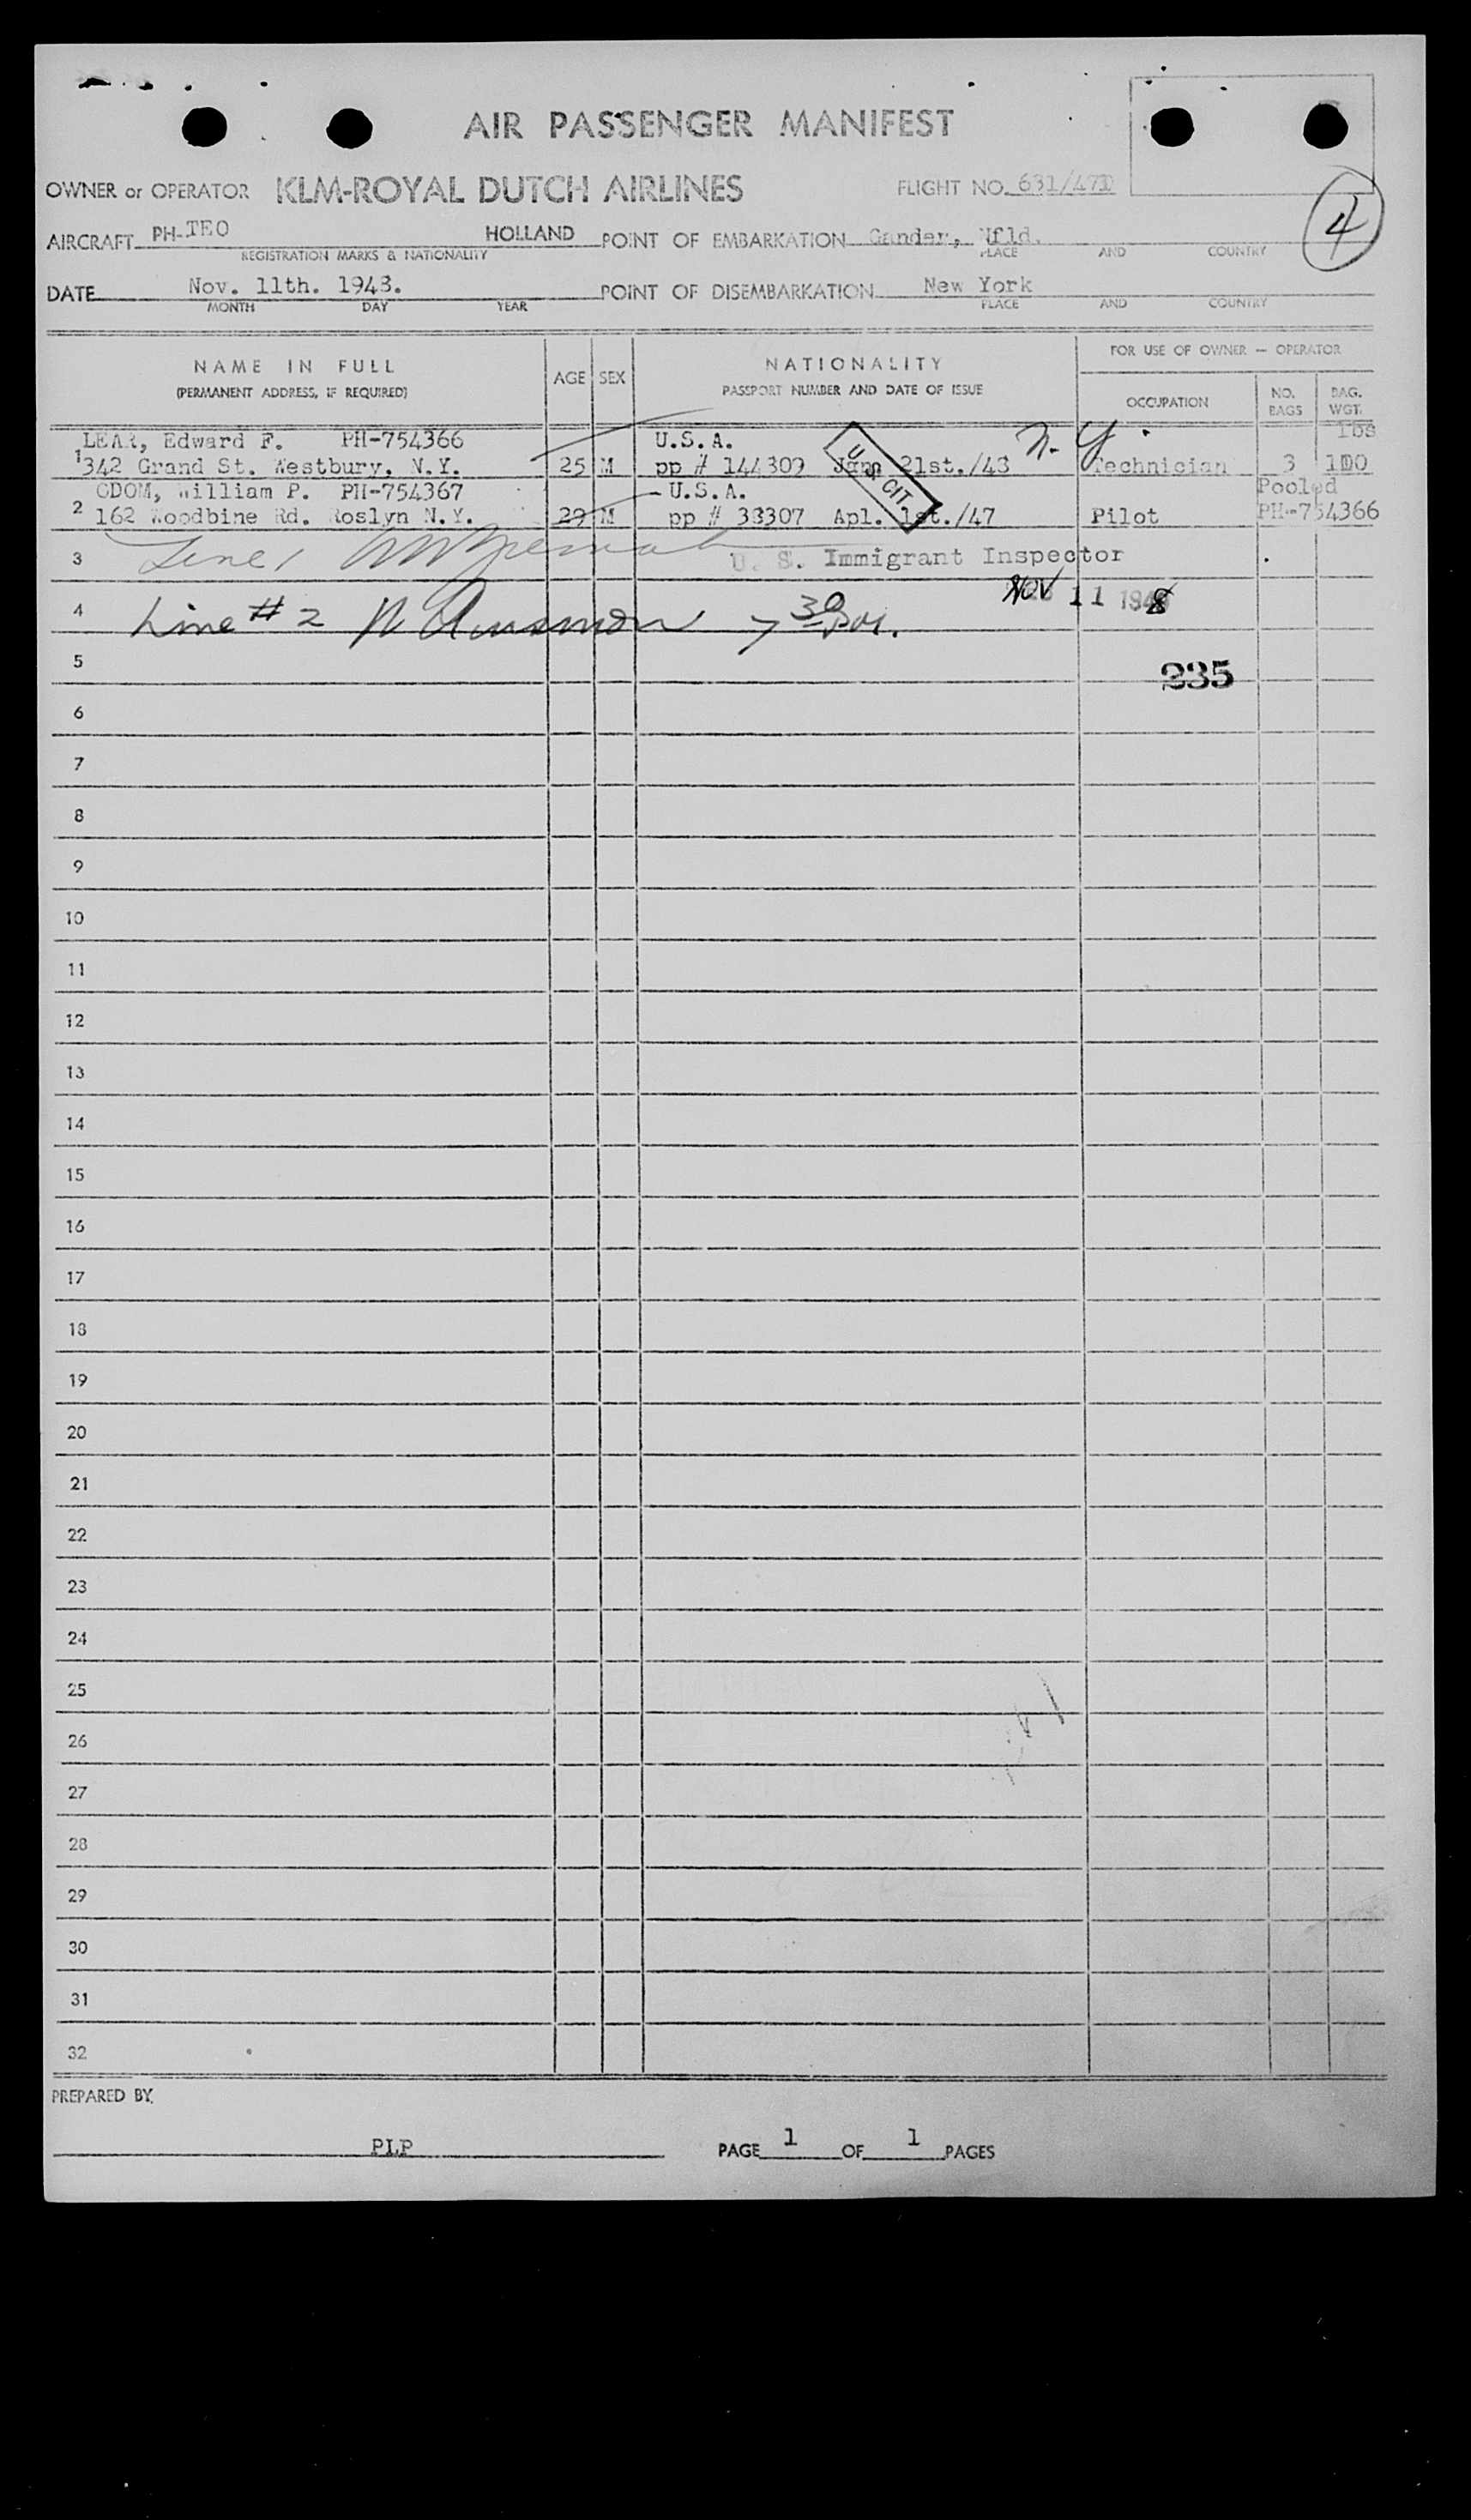 AIR PASSENGER MANIFEST
OWNER or OPERATOR KLM-ROYAL DUTCH AIRLINES FLIGHT NO. 631/47
4
AIRCRAFT PH-TEO HOLLAND POINT OF EMBARKATION Gander, Nfld.
REGISTRATION MARKS & NATIONALITY PLACE AND COUNTRY
DATE Nov. 11th. 1948. POINT OF DISEMBARKATION New York
MONTH DAY YEAR PLACE AND COUNTRY
NAME IN FULL AGE SEX NATIONALITY FOR USE OF OWNER — OPERATOR
(PERMANENT ADDRESS, IF REQUIRED) PASSPORT NUMBER AND DATE OF ISSUE OCCUPATION NO. BAGS BAG. WGT.
LEAR, Edward F. PH-754366 U.S.A. N.Y. lbs
1 342 Grand St. Westbury. N.Y. 25 M pp # 144309 21st./48 Technician 3 100
U S CIT.
ODOM, William P. PH-754367 U.S.A. Pooled
2 162 Woodbine Rd. Roslyn N.Y. 29 M pp # 33307 Apl. 1st./47 Pilot PH-754366
3 Line 1 U. S. Immigrant Inspector
4 Line # 2 NOV 11 1948
5 235
6
7
8
9
10
11
12
13
14
15
16
17
18
19
20
21
22
23
24
25
26
27
28
29
30
31
32
PREPARED BY.
PLP PAGE 1 OF 1 PAGES